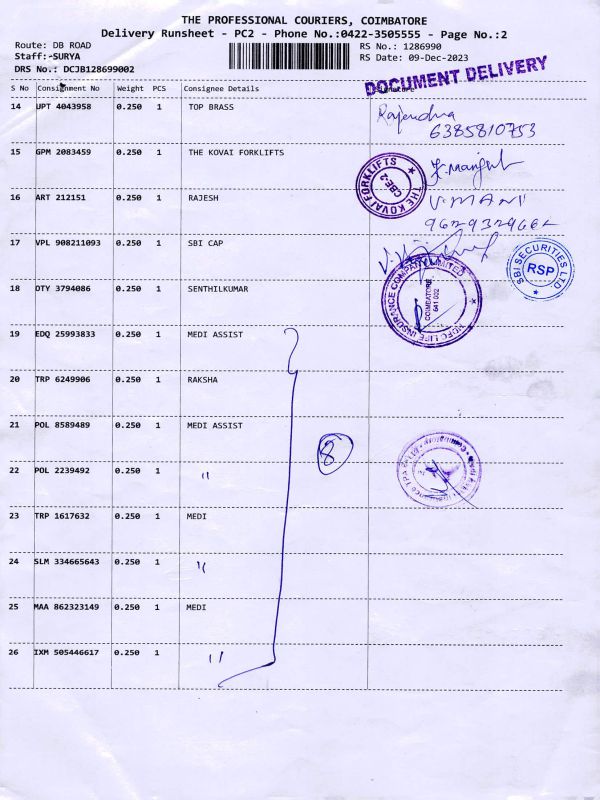 THE PROFESSIONAL COURIERS, COIMBATORE
Delivery Runsheet - PC2 - Phone No.:0422-3505555 - Page No.:2
Route: DB ROAD
RS No.: 1286990
Staff:-SURYA
RS Date: 09-Dec-2023
DRS No.: DCJB128699002
DOCUMENT DELIVERY
S No Consignment No Weight PCS Consignee Details Signature
14 UPT 4043958 0.250 1 TOP BRASS Rajendra
6385810753
15 GPM 2083459 0.250 1 THE KOVAI FORKLIFTS
THE KOVAI FORKLIFTS
CBE-2
16 ART 212151 0.250 1 RAJESH V.MANI
17 VPL 908211093 0.250 1 SBI CAP
SBI SECURITIES LTD
RSP
18 DTY 3794086 0.250 1 SENTHILKUMAR
HDFC LIFE INSURANCE COMPANY LIMITED
COIMBATORE
641 002
19 EDQ 25993833 0.250 1 MEDI ASSIST
20 TRP 6249906 0.250 1 RAKSHA
21 POL 8589489 0.250 1 MEDI ASSIST
8
22 POL 2239492 0.250 1 "
23 TRP 1617632 0.250 1 MEDI
24 SLM 334665643 0.250 1 "
25 MAA 862323149 0.250 1 MEDI
26 IXM 505446617 0.250 1 "